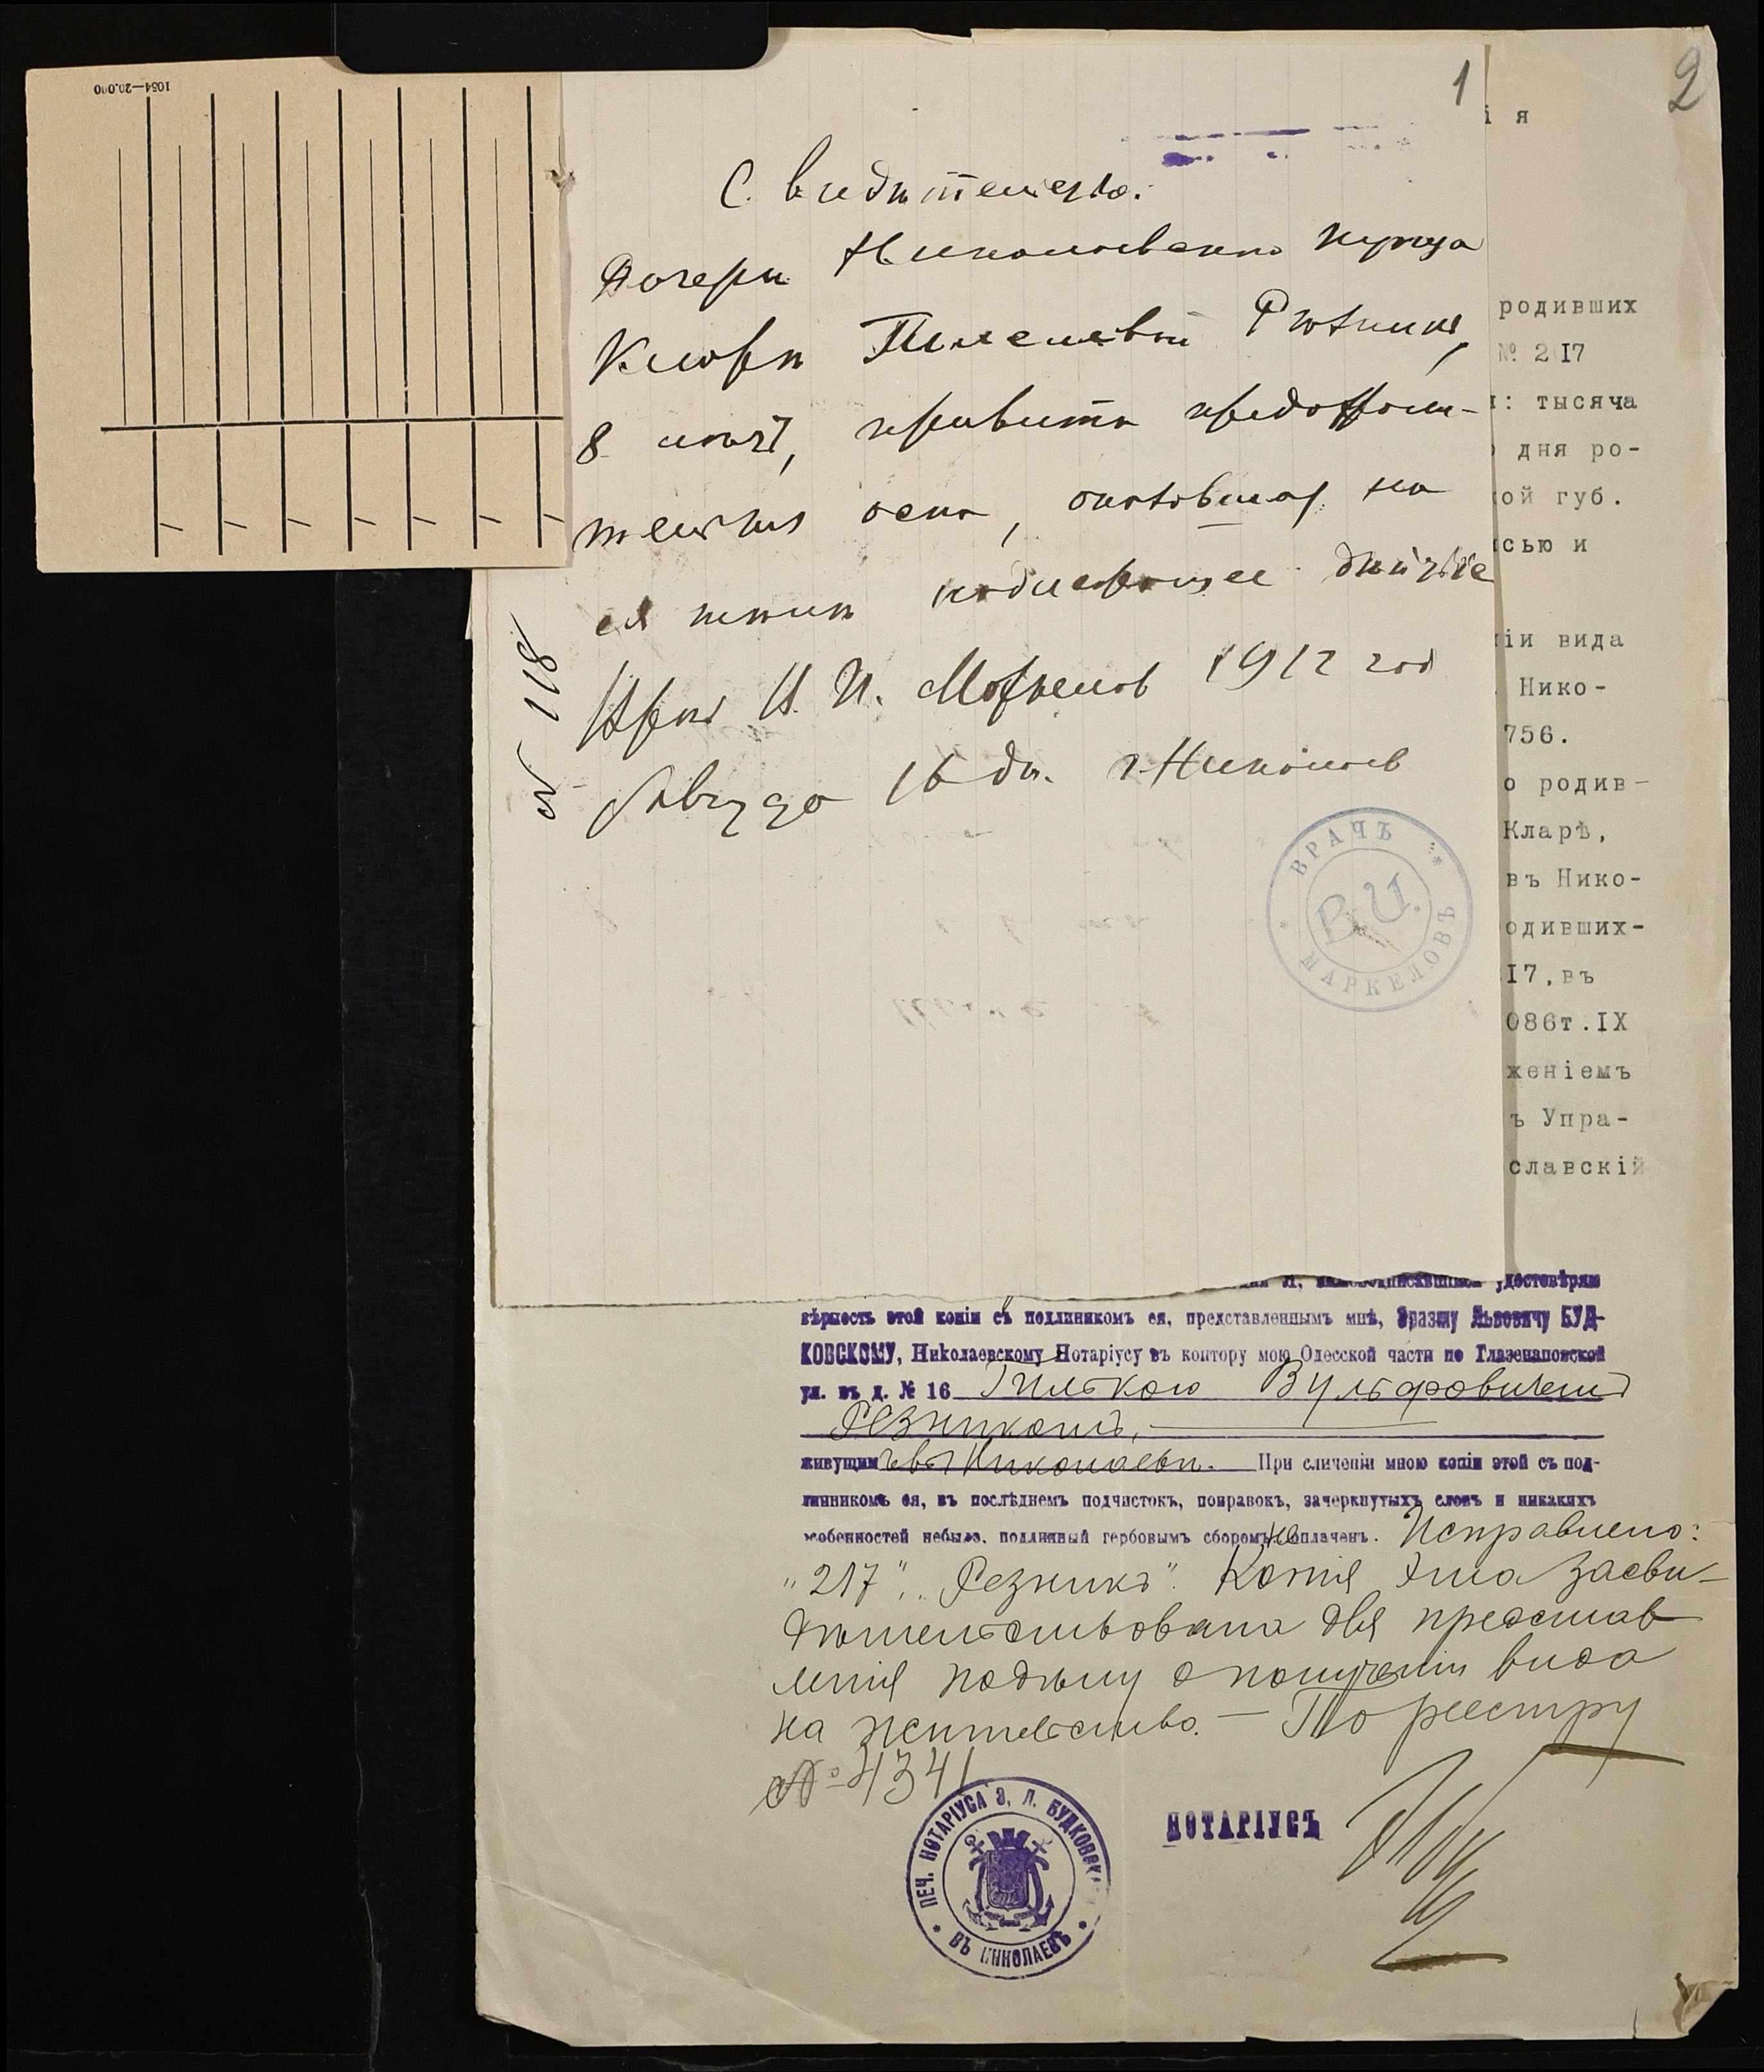 1054—20.000
1
2
і я
Свидѣтельство.
Дочери Николаевскаго купца
Кларѣ Пилелевой Рѣзникъ,
8 лѣтъ, привита предохрани-
тельная оспа, оказавшая на
ея тѣлѣ надлежащее дѣйствіе
Врачъ В. И. Маркеловъ 1912 год
Августа 16 дн. г. Николаевъ
№ 118
ВРАЧЪ
В.И.
МАРКЕЛОВЪ
родивших
№ 217
: тысяча
дня ро-
ой губ.
сью и
іи вида
Нико-
756.
о родив-
Кларѣ,
въ Нико-
одивших-
I7,въ
086т.IX
женіемъ
ъ Упра-
славскій
Я, нижеподписавшійся удостовѣряю
вѣрность этой копіи съ подлиникомъ ея, представленнымъ мнѣ, Эразму Львовичу БУД-
КОВСКОМУ, Николаевскому Нотаріусу въ контору мою Одесской части по Глазенаповской
ул. въ д. № 16 Гилькою Вульфовичемъ
Резникомъ,
живущимъ въ Николаевѣ. При сличеніи мною копіи этой съ под-
линникомъ ея, въ послѣднемъ подчистокъ, поправокъ, зачеркнутыхъ словъ и никакихъ
особенностей небыло. подлинный гербовымъ сборомъ не оплаченъ. Исправлено:
„217", „Резникъ". Копія эта засви-
дѣтельствована для представ
ленія подъ ему о полученіи вида
на жительство. — По реестру
№ 4341
ПЕЧ. НОТАРІУСА Э. Л. БУДКОВСК
ВЪ НИКОЛАЕВѢ
НОТАРІУСЪ